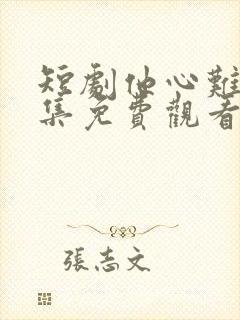 短劇仙心難
集免費觀看
張志文